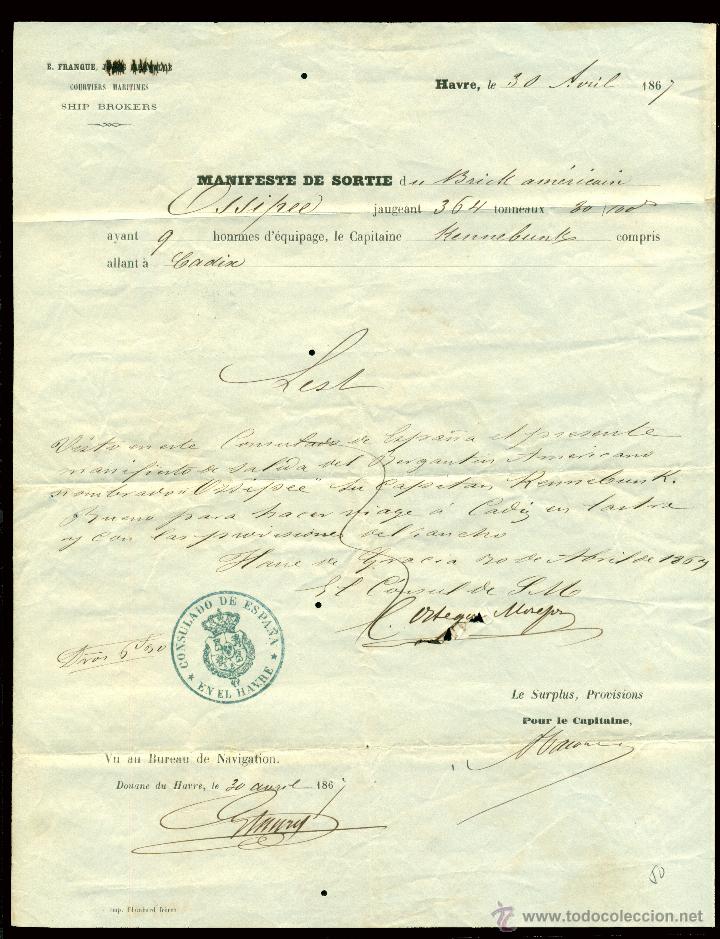 E. FRANQUE,
COURTIERS MARITIMES
SHIP BROKERS
Havre, le 30 Avril 1867
MANIFESTE DE SORTIE du Brick américain
Ossipee jaugeant 364 tonneaux 80/100
ayant 9 hommes d'équipage, le Capitaine Kennebunk compris
allant à Cadix
Lest
Visto en este Consulado de España el presente
manifiesto de salida del Bergantin Americano
nombrado "Ossipee" su capitan Kennebunk.
Bueno para hacer viage á Cadiz en lastre
y con las provisiones del rancho
Havre de Gracia 30 de Abril de 1867
El Consul de S M
Ortega Morejon
CONSULADO DE ESPAÑA
EN EL HAVRE
Dros 6 f 50
Le Surplus, Provisions
Pour le Capitaine,
Vu au Bureau de Navigation.
Douane du Havre, le 30 avril 1867
Imp. frères
50
www.todocoleccion.net